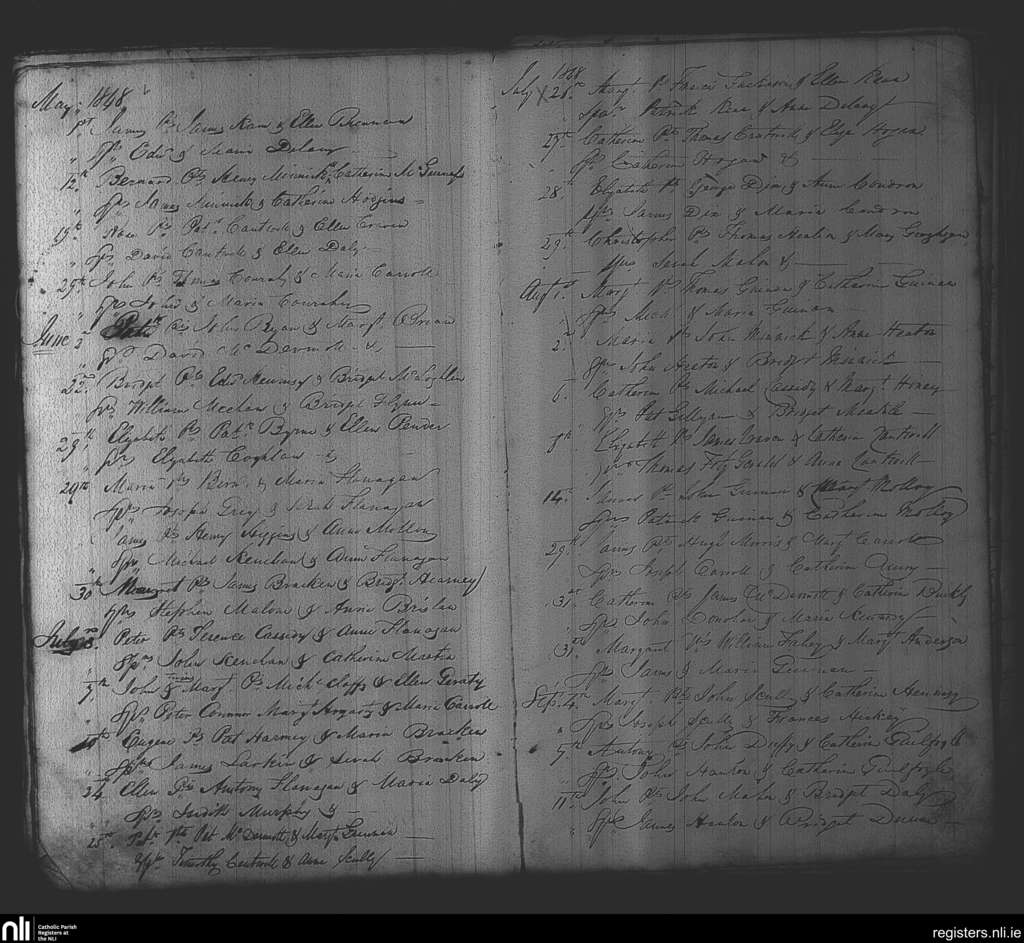 May 1848
1st James Ps James Kan & Ellen Brennan
" Sps Edd & Delany
12th Bernard Ps Henry Minnick & Catherin McGuness
" Sps James Minnick & Catherine Higgins
19th Ps Patt Cantwell & Ellen
" Sps David Cantwell & Ellen Daly
29th John Ps Thomas Conrahy & Maria Carroll
" Sps John & Maria Conrahy
June 2d Ps John Ryan & Margt
" Sps David McDermott &
22nd Bridget Ps Edd & Bridget McLoghlin
Sps William Meehan & Bridget Flynn
29th Elizabeth Ps Patk Byrne & Ellen Pender
" Sps Elizabeth Coghlan &
29th Maria Ps & Maria Flanagan
Sps Joseph Grey & Sarah Flanagan
James Ps Henry Higgins & Anne Mullen
" Sps Michael Kenehan & Anne Flanagan
30th Margaret Ps James Bracken & Bridgt Kearney
" Sps Stephen Malone & Annie Breslan
July 3rd Peter Ps Terence Cassidy & Anne Flanagan
Sps John Kenehan & Catherin Martin
7th John & Margt Ps Michl Claffy & Ellen Geraty
" Sps Peter Connor Margt Hogarty & Maria Carroll
10th Eugene Ps Pat Harney & Maria Bracken
" Sps James Larkin & Sarah Bracken
24 Ellen Ps Antony Flanagan & Maria Daly
" Sps Judith Murphy &
25th Patk Ps Pat McDermott & Margt Guinan
Sps Timothy Cantwell & Anne Scully
1848
July 26th Margt Ps Francis Jackson & Ellen Kena
" Spsr Patrick Kena & Anne Delany
27th Catherin Ps Thomas Cantwell & Eliza Hogan
Sps Catherin Hogan &
28th Elizabeth Ps George Dix & Anne Condron
Sps James Dix & Maria Condron
29th Christopher Ps Thomas Henlin & Mary Geoghegan
Sps Sarah Mahon &
Augt 1st Margt Ps Thomas Guinan & Catherin Guinan
" Sps Michl & Maria Guinan
2d Maria Ps John Minnick & Anne Heaton
Sps John Heaton & Bridget Minnick
6 Catherin Ps Michael Cassidy & Margt Honey
Sps Pat Gilligan & Bridget
8th Elizabeth Ps James & Catherin Cantwell
Sps Thomas FitzGerald & Anne Cantwell
14th James Ps John Guinan & Mary Molloy
Sps Patrick Guinan & Catherin Molloy
29th James Ps Hugh Morris & Margt Carroll
Sps Joseph Carroll & Catherin
31st Catherin Ps James McDermott & Catherin Dunkly
" Sps John Donohu & Maria Kearney
31st Margaret Ps William Fahey & Margt Anderson
Sps James & Maria Guinnan
Sep. 4th Margt Ps John Scully & Catherin Hennessy
" Sps Joseph Scully & Frances Hickey
5th Antony Ps John Duffy & Catherin Guilfoyle
" Sps John Hanlon & Catherin Guilfoyle
11th John Ps John Mahon & Bridget Daly
" Sps James Hanlon & Bridget
nli
Catholic Parish
Registers at
the NLI
registers.nli.ie